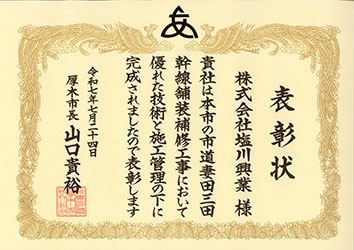 表彰状
株式会社塩川興業 様
貴社は本市の市道妻田三田
幹線舗装補修工事において
優れた技術と施工管理の下に
完成されましたので表彰します
令和七年七月二十四日
厚木市長 山口貴裕